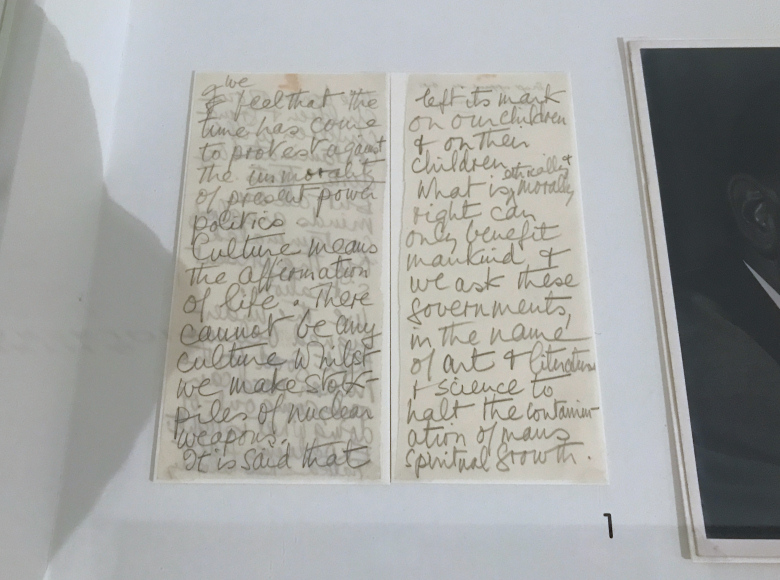 we
& feel that the
time has come
to protest against
the immorality
of present power
politics
Culture means
the affirmation
of life. There
cannot be any
culture whilst
we make stock-
piles of nuclear
weapons.
It is said that
left its mark
on our children
& on their
children
ethically &
What is morally
right can
only benefit
mankind &
we ask these
governments,
in the name
of art & literature
& science to
halt the contamin-
ation of mans
spiritual growth.
1